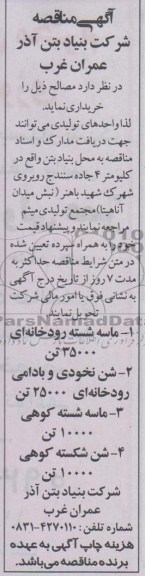 آگهی مناقصه
شرکت بنیاد بتن آذر
عمران غرب
در نظر دارد مصالح ذیل را
خریداری نماید.
لذا واحدهای تولیدی می توانند
جهت دریافت مدارک و اسناد
مناقصه به محل بنیاد بتن واقع در
کلیومتر ۴ جاده سنندج روبروی
شهرک شهید باهنر (نبش میدان
آناهیتا) مجتمع تولیدی میثم
مراجعه نمایند و پیشنهاد قیمت
خود را به همراه سپرده تعیین شده
در متن شرایط مناقصه حداکثر به
مدت ۷ روز از تاریخ درج آگهی
به نشانی فوق یا امور مالی شرکت
تحویل نمایند.
۱- ماسه شسته رودخانه‌ای
۳۵۰۰۰ تن
۲- شن نخودی و بادامی
رودخانه‌ای ۲۵۰۰۰ تن
۳- ماسه شسته کوهی
۱۰۰۰۰ تن
۴- شن شکسته کوهی
۱۰۰۰۰ تن
شرکت بنیاد بتن آذر
عمران غرب
شماره تلفن: ۴۲۷۰۱۱۰-۰۸۳۱
هزینه چاپ آگهی به عهده
برنده مناقصه می‌باشد.
ParsNamadData